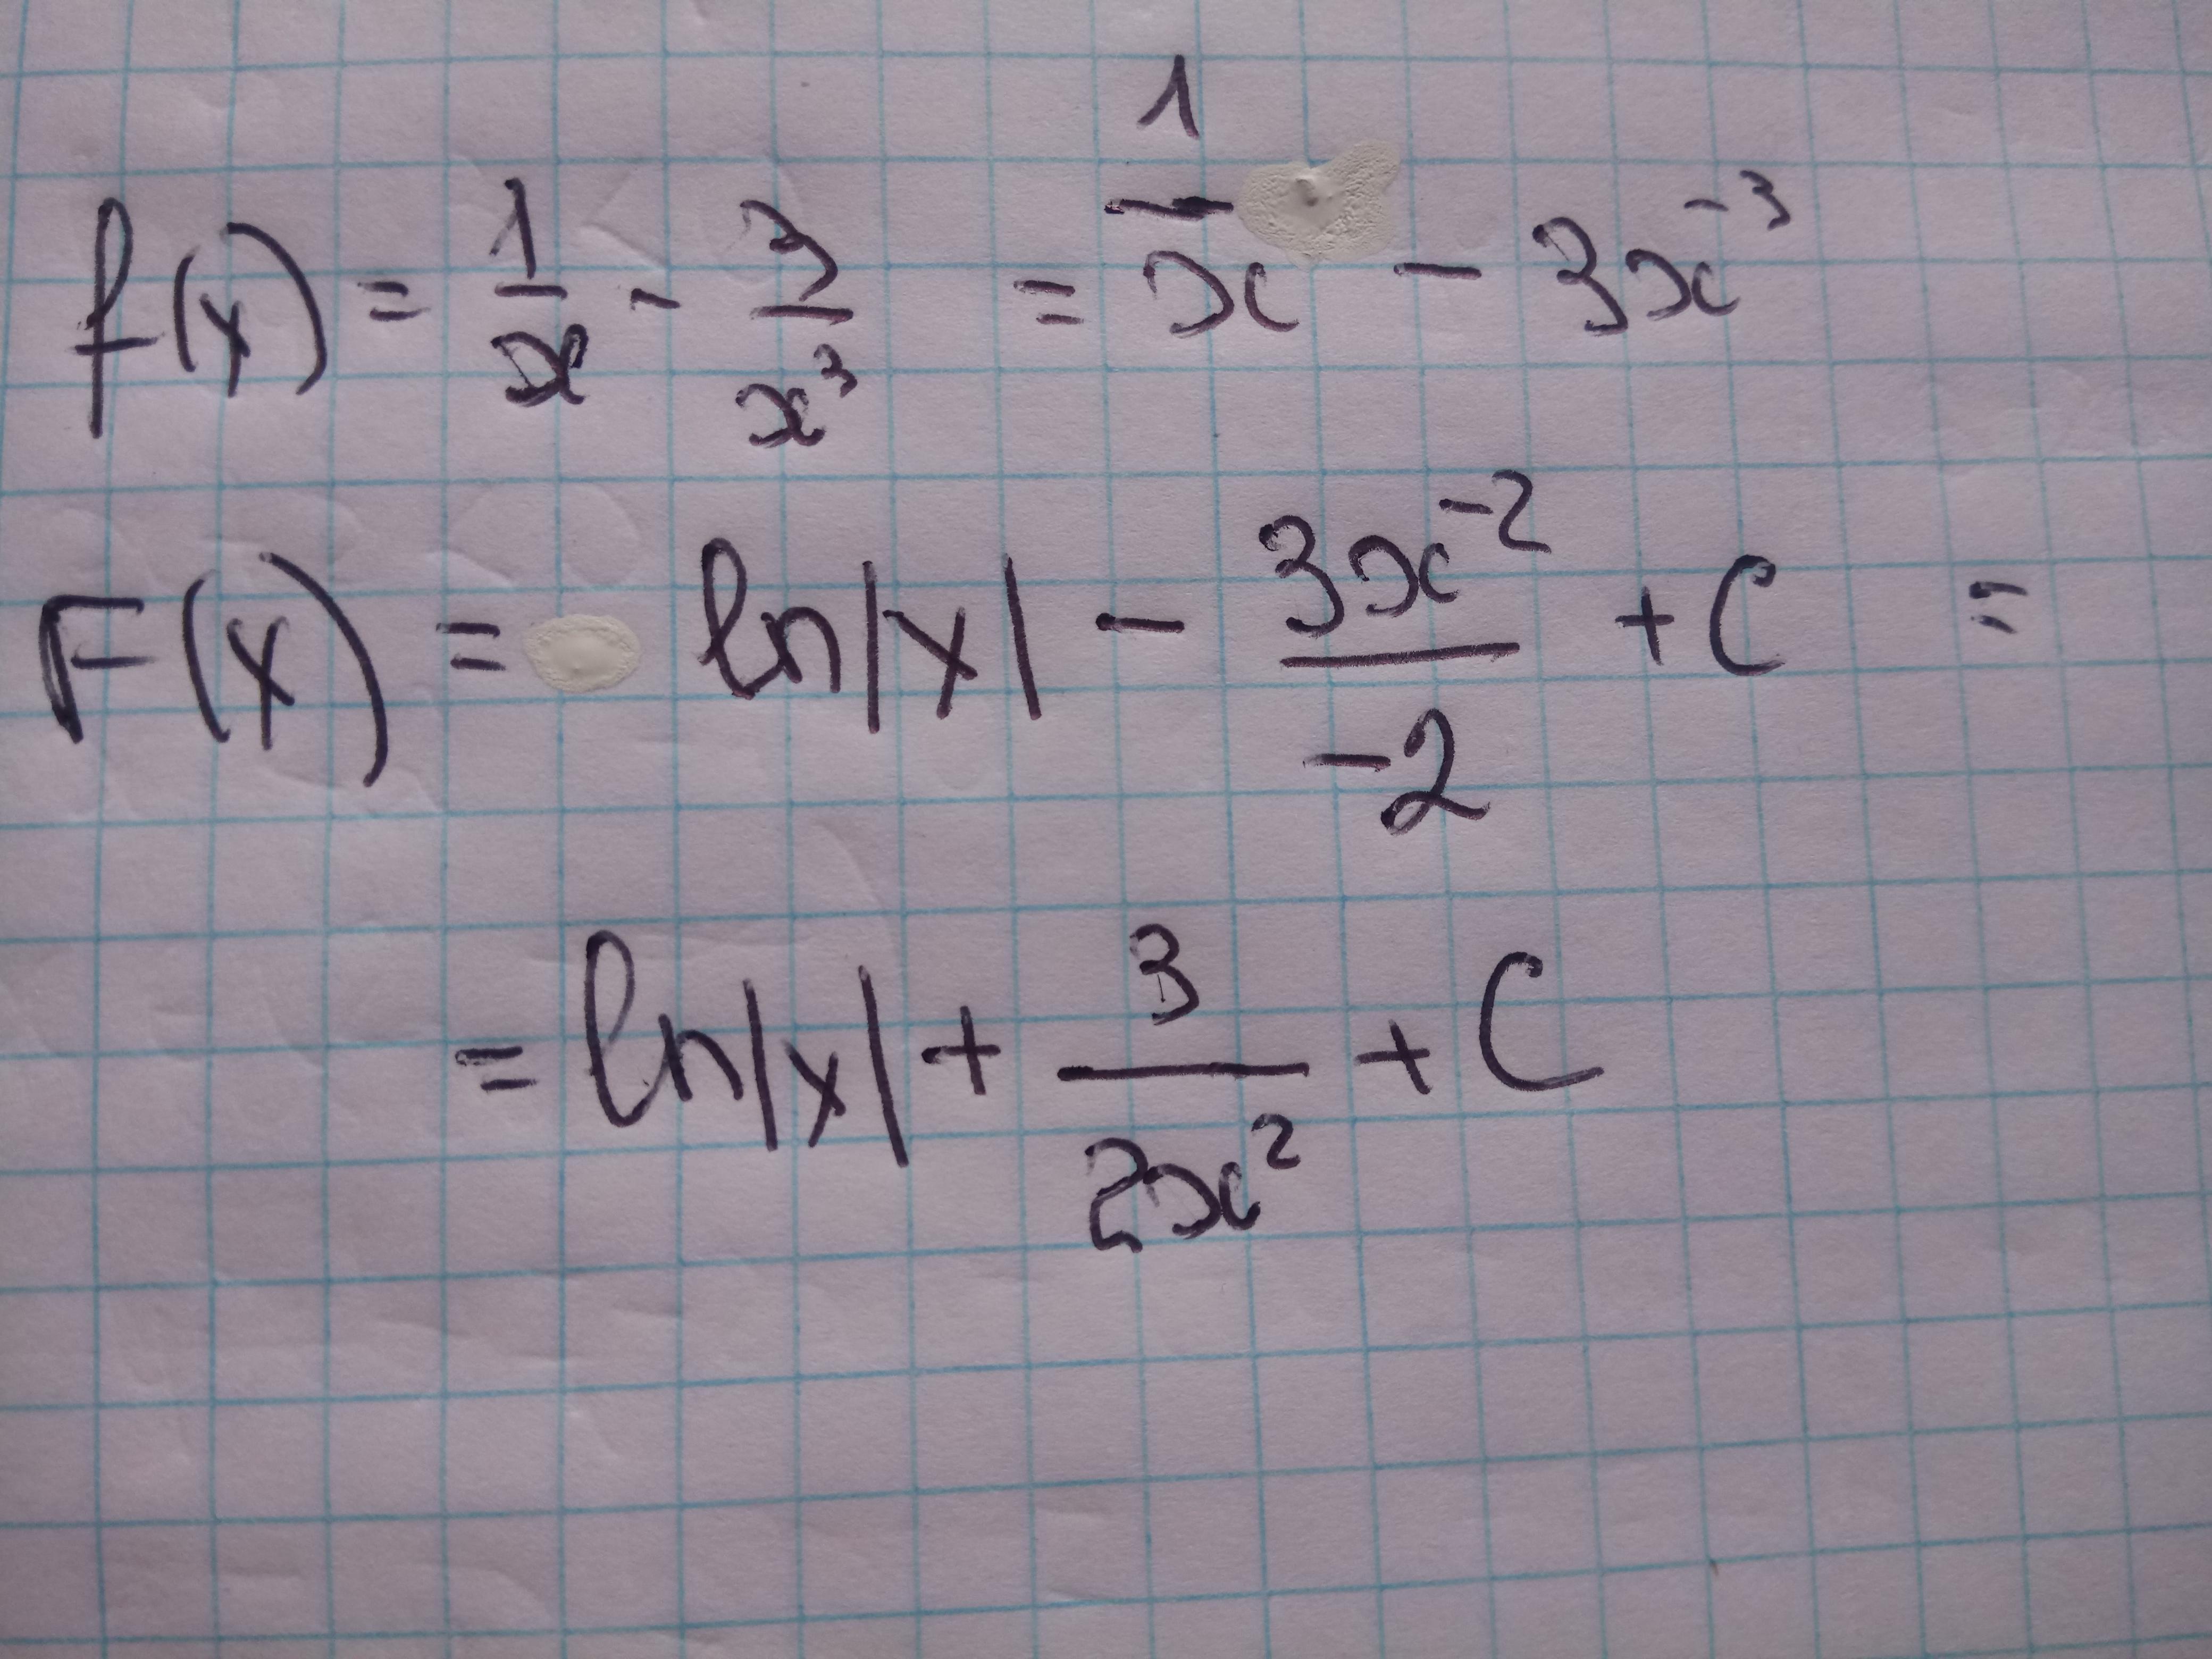 f(x) = 1/x - 3/x³ = 1/x - 3x⁻³
F(x) = ln|x| - 3x⁻²/-2 + C =
= ln|x| + 3/2x² + C